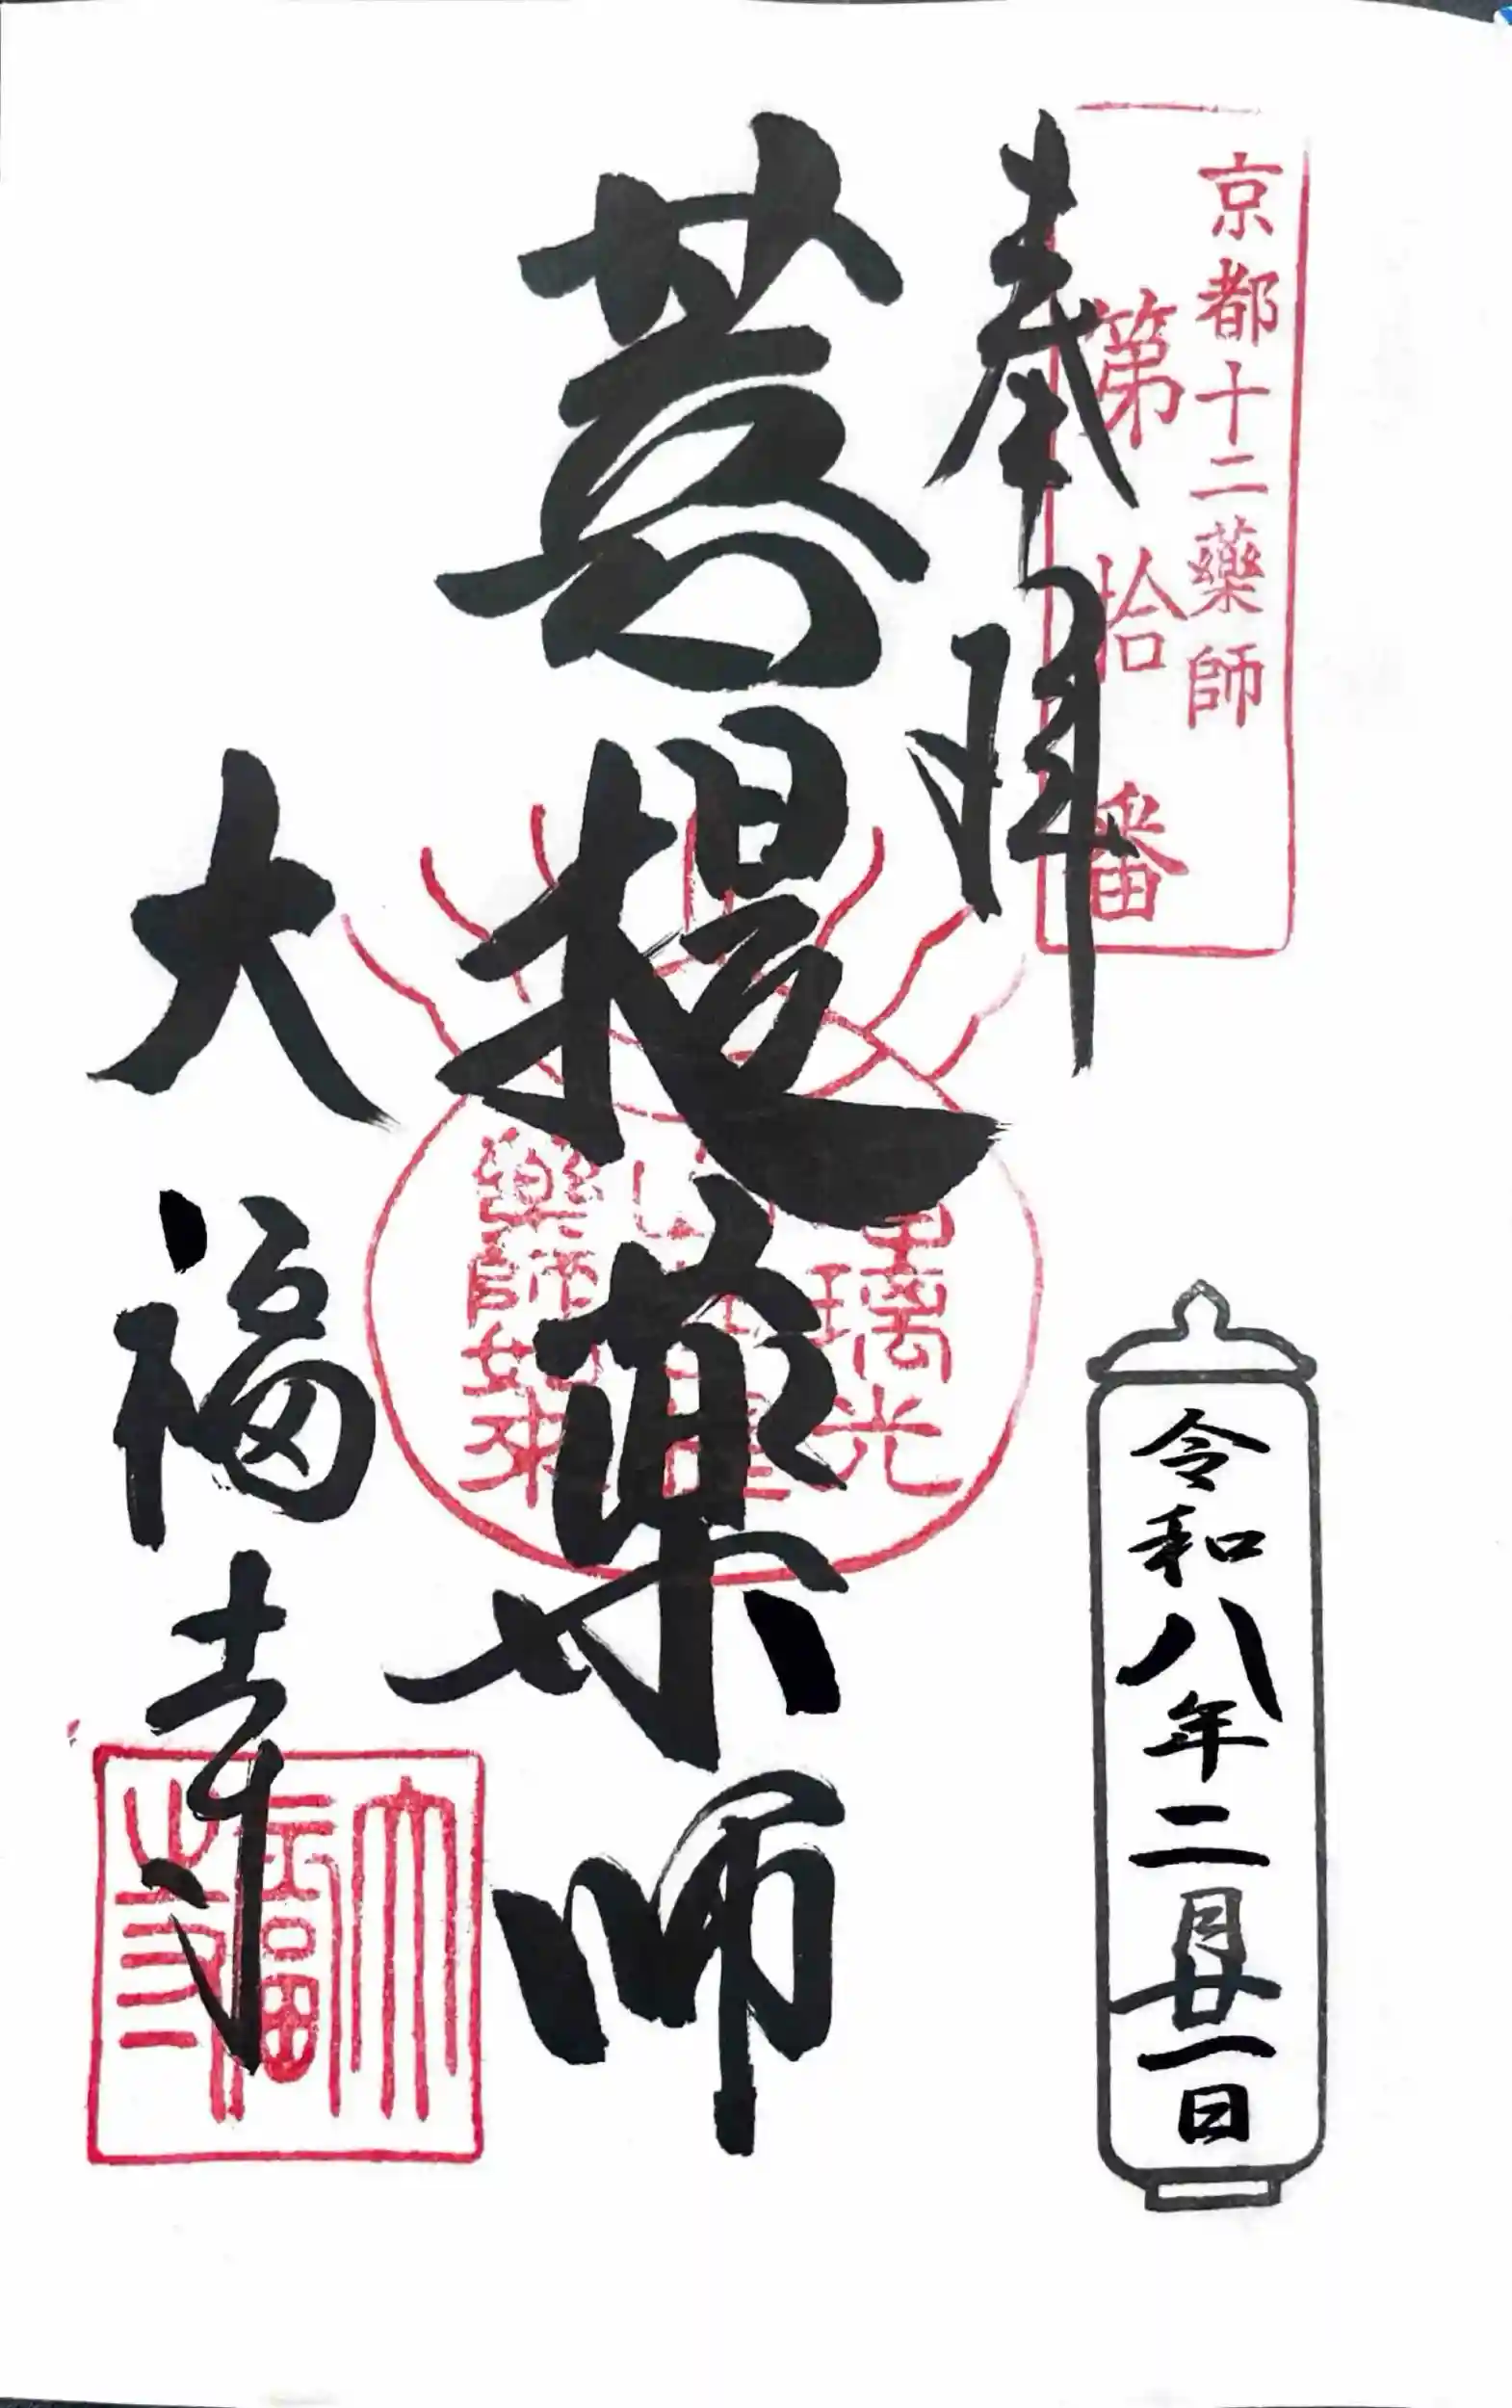 京都十二藥師
第拾番
奉拝
令和八年二月廿一日
菩提薬師
瑠璃光
藥師如来
大福寺
大福寺